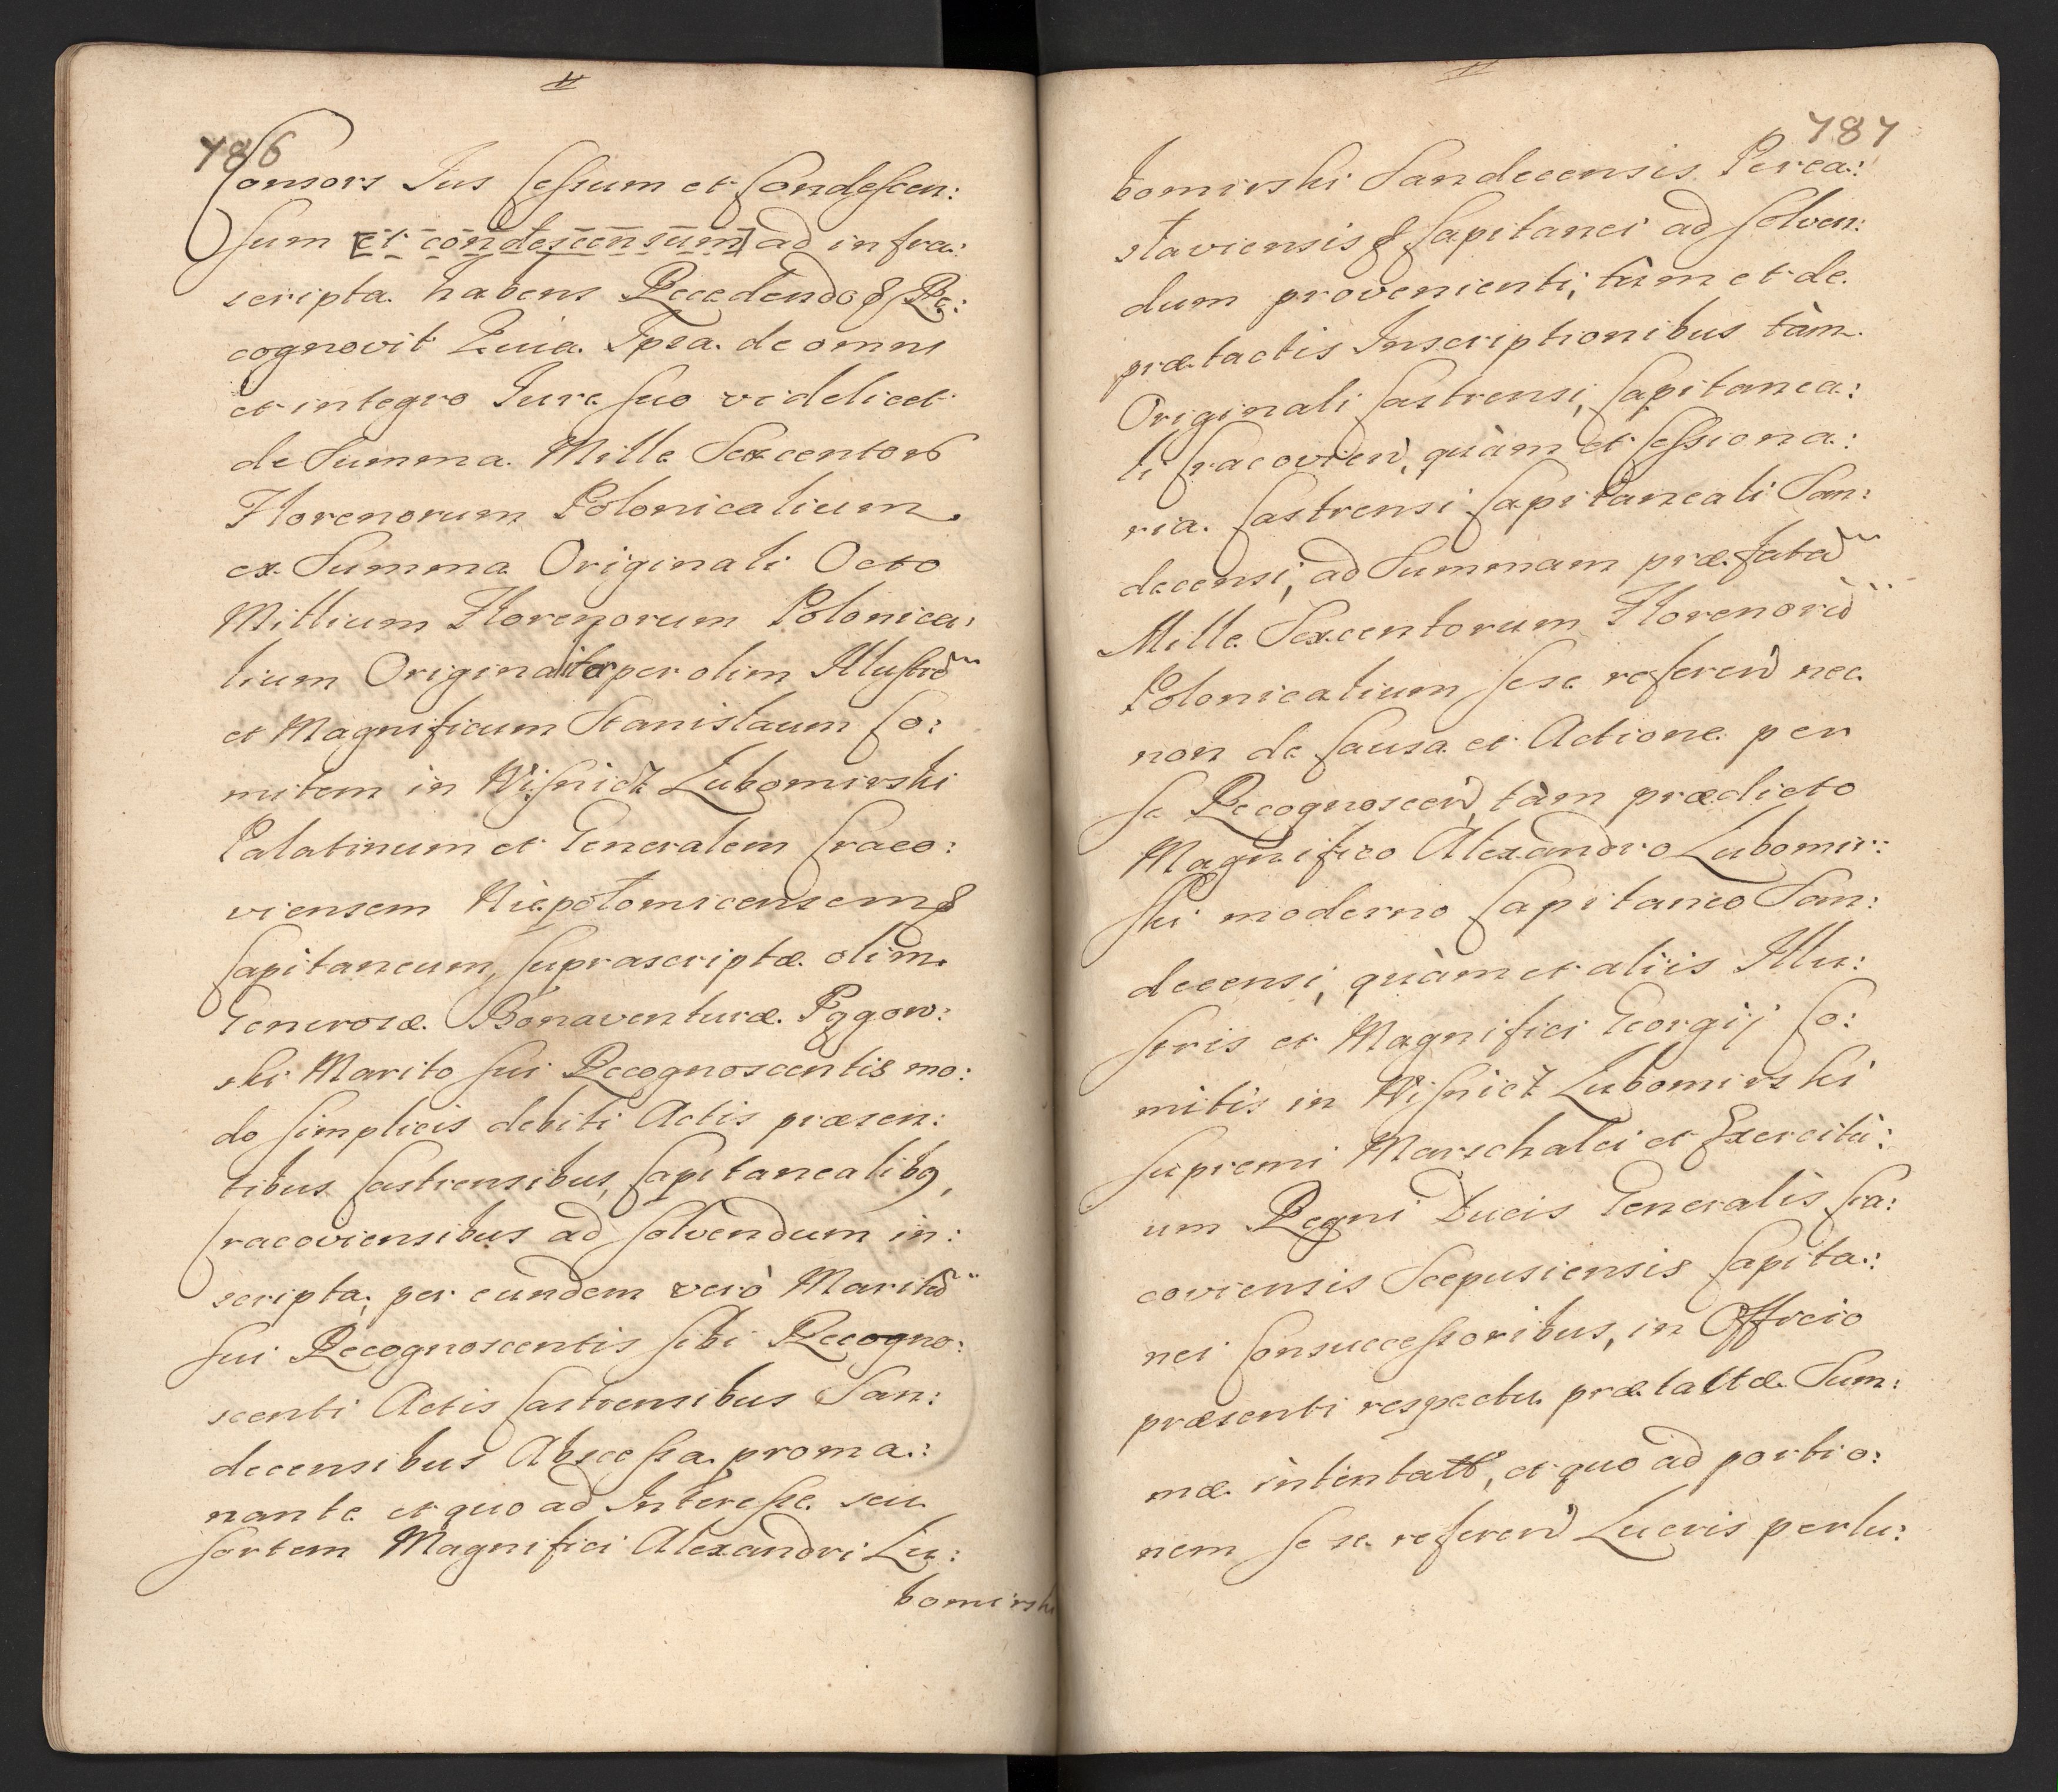 786
Consors Jus Cessum et Condescen:
sum [et condescensum] ad infra:
scripta habens Recedendo & Re:
cognovit Quia Ipsa de omni
et integro Jure suo videlicet
de Summa Mille Sexcentorũ
Florenorum Polonicalium
ex Summa Originali Octo
Millium Florenorum Polonica:
lium Originaliter per olim Illustrẽ
et Magnificum Stanislaum Co:
mitem in Wiśnicz Lubomirski
Palatinum et Generalem Craco:
viensem Niepołomicensem &
Capitaneum, suprascriptæ olim
Generosæ Bonaventuræ
ski Marito sui Recognoscentis mo:
do simplicis debiti Actis præsen:
tibus Castrensibus, Capitanealibq,
Cracoviensibus ad solvendum in:
scripta, per eundem verò Maritũ
sui Recognoscentis sibi Recogno:
scenti Actis Castrensibus San:
decensibus Abscessa proma:
nante et quo ad Interesse seu
sortem Magnifici Alexandri Lu:
bomirski
787
bomirski Sandecensis Perea:
slaviensis & Capitanei ad solven:
dum provenienti, tùm et de
prætactis Inscriptionibus tàm
Originali Castrensi, Capitanea:
li Cracovien, quàm et Cessiona:
ria Castrensi Capitaneali San:
decensi, ad Summam præfatã
Mille Sexcentorum Florenorũ
Polonicalium sese referen nec
non de Causa et Actione per
se Recognoscen, tàm prædicto
Magnifico Alexandro Lubomir:
ski moderno Capitaneo San:
decensi, quàm et aliis Illu:
stris et Magnifici Georgij Co:
mitis in Wiśnicz Lubomirski
supremi Marschalci et Exercitù:
um Regni Ducis Generalis Cra:
coviensis Scepusiensis Capita:
nei Consuccessoribus, in Officio
præsenti respectu prætactæ Sum:
mæ intentatã, et quo ad portio:
nem se se referen Lucris perlu: